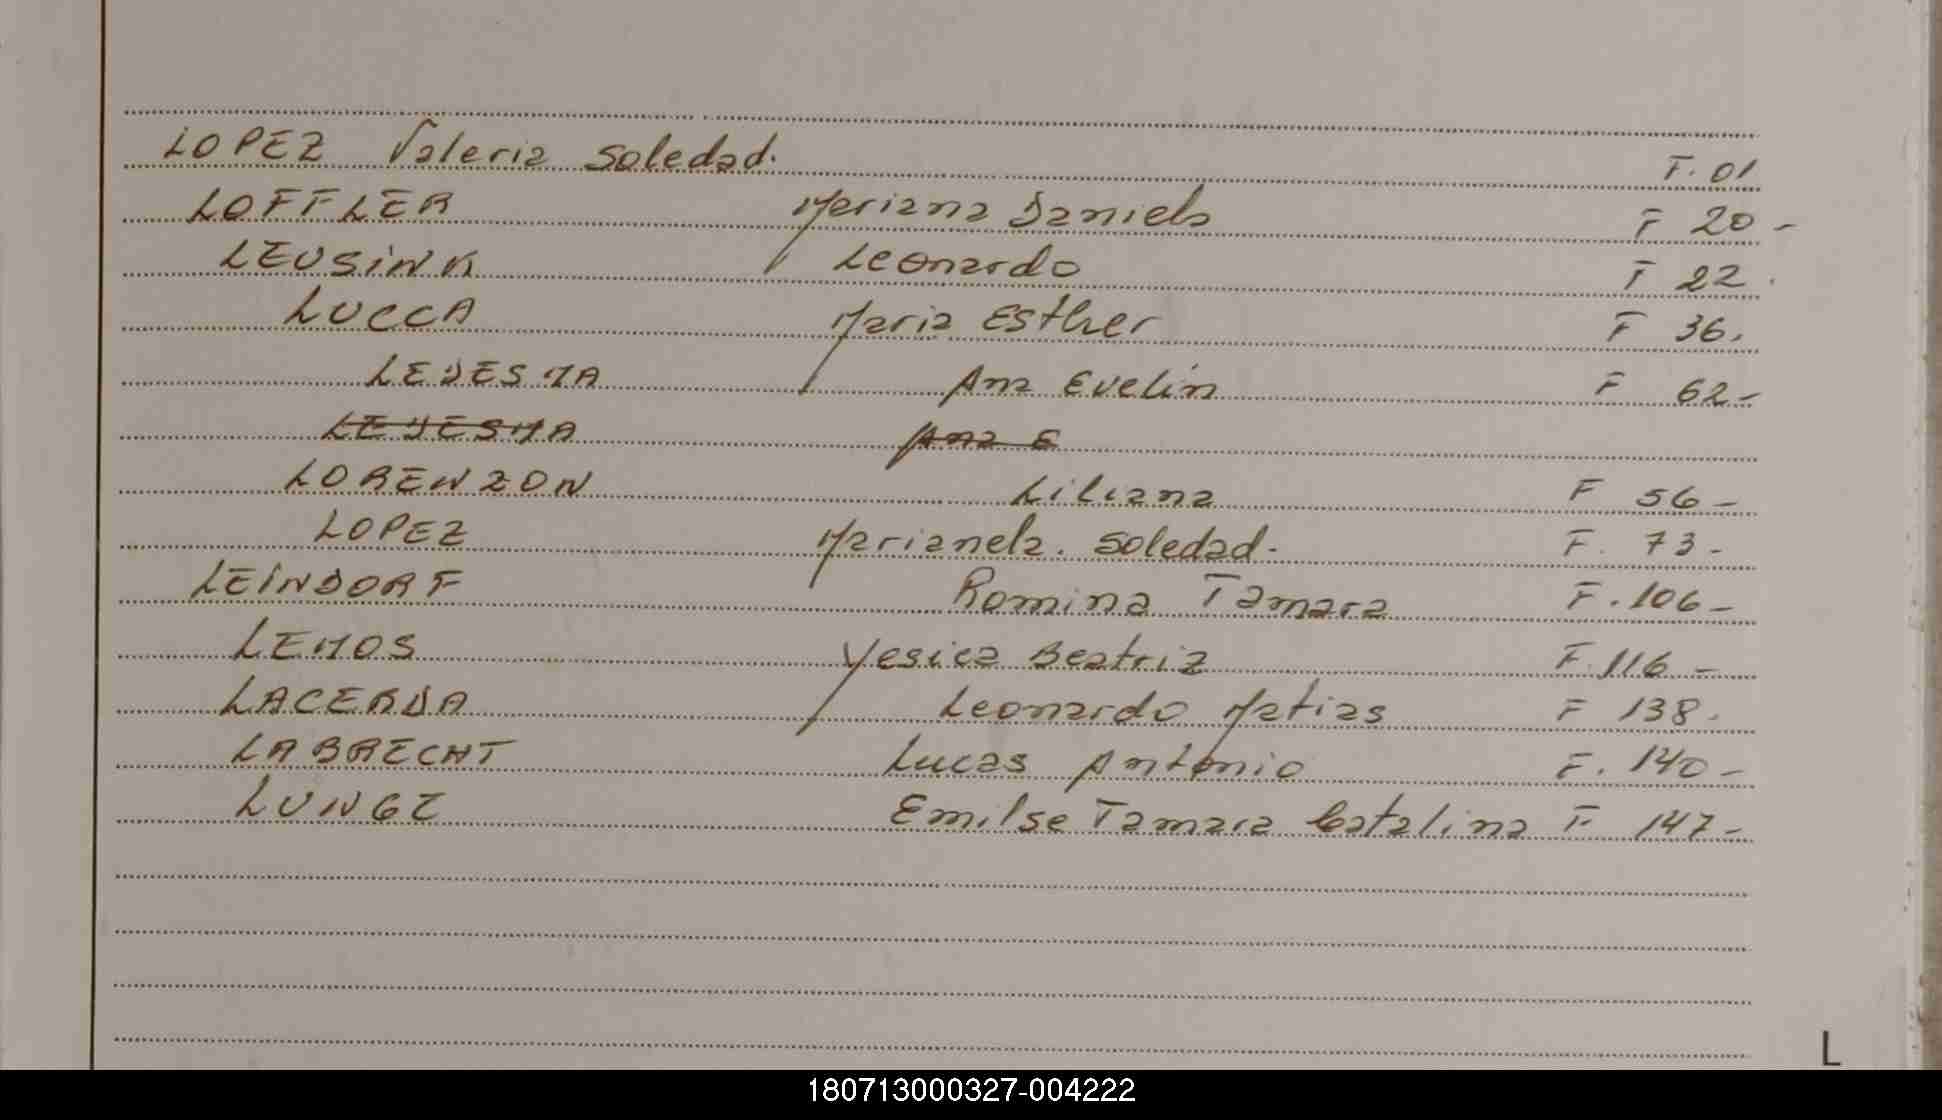 LOPEZ Valeria Soledad. F. 01
LOFFLER Mariana Daniela F 20 -
LEUSINK Leonardo F 22.
LUCCA Maria Esther F 36.
LEDESMA Ana Evelin F 62 -
LEDESMA Ana E
LORENZON Liliana F 56 -
LOPEZ Marianela. Soledad. F. 73 -
LEINDORF Romina Tamara F. 106 -
LEMOS Yesica Beatriz F. 116 -
LACERDA Leonardo Matias F 138.
LABRECHT Lucas Antonio F. 140 -
LUNGE Emilse Tamara Catalina F 147 -
L
180713000327-004222